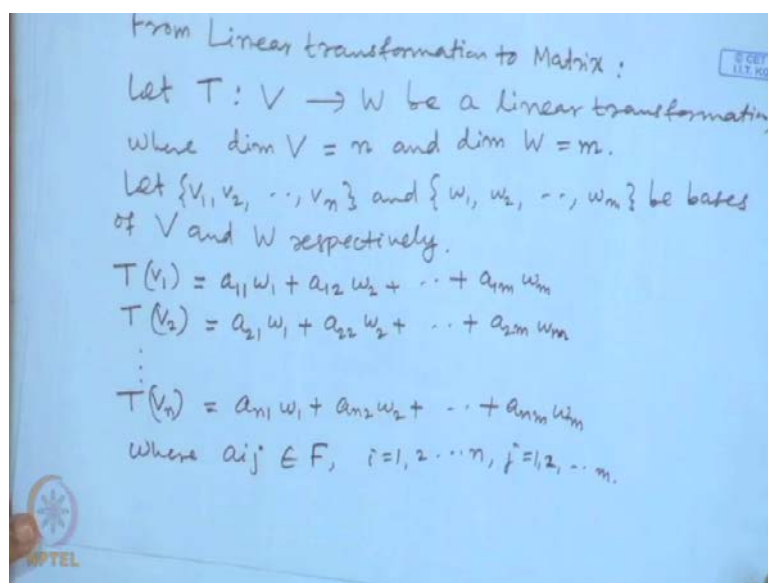 From Linear transformation to Matrix :
© CET
I.I.T. KG
Let T : V → W be a linear transformation
where dim V = n and dim W = m.
Let {v₁, v₂, .., vₙ} and {w₁, w₂, --, wₘ} be bases
of V and W respectively.
T(v₁) = a₁₁w₁ + a₁₂w₂ + .. + a₁ₘwₘ
T(v₂) = a₂₁w₁ + a₂₂w₂ + .. + a₂ₘwₘ
⋮
T(vₙ) = aₙ₁w₁ + aₙ₂w₂ + .. + aₙₘwₘ
where aij ∈ F, i=1, 2...n, j=1,2, .. m.
NPTEL